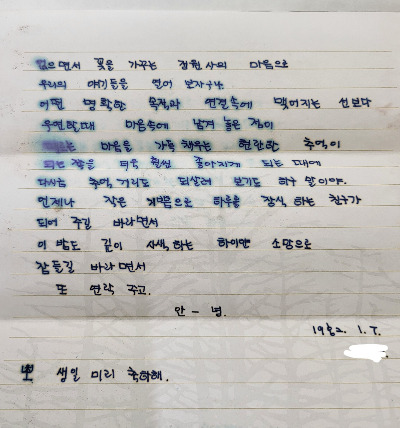 읽으면서 꽃을 가꾸는 정원사의 마음으로
우리의 얘기들을 엮어 보자꾸나.
어떤 명확한 목적과 연결속에 맺어지는 선보다
우연한때 마음속에 남겨 놓은 점이
마음을 가득 채우는 현란한 추억이
되면 좋아지게 되는 때에
다시금 추억거리도 되살려 보기도 하구 말이야.
언제나 작은 기쁨으로 하루를 장식하는 친구가
되어 주길 바라면서
이 밤도 깊이 사색하는 하이얀 소망으로
잠들길 바라면서
또 연락 주고.
안 - 녕.
1982. 1. 7.
뽀 생일 미리 축하해.